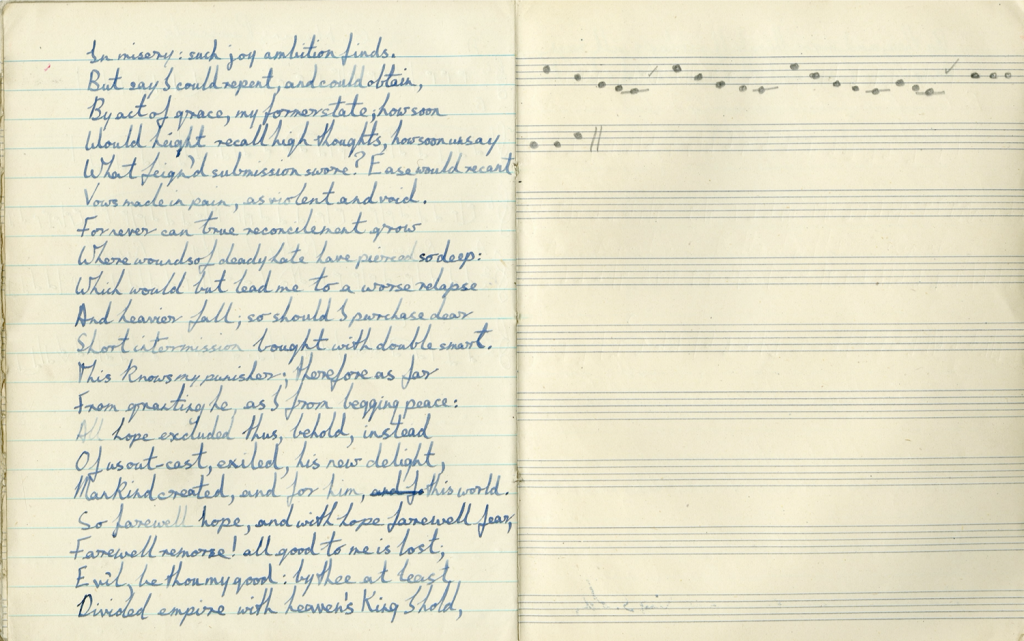 In misery: such joy ambition finds.
But say I could repent, and could obtain,
By act of grace, my former state; how soon
Would height recall high thoughts, how soon unsay
What feign'd submission swore? Ease would recant
Vows made in pain, as violent and void.
For never can true reconcilement grow
Where wounds of deadly hate have pierced so deep:
Which would but lead me to a worse relapse
And heavier fall; so should I purchase dear
Short intermission bought with double smart.
This knows my punisher; therefore as far
From granting he, as I from begging peace:
All hope excluded thus, behold, instead
Of us out-cast, exiled, his new delight,
Mankind created, and for him, and f this world.
So farewell hope, and with hope farewell fear,
Farewell remorse! all good to me is lost;
Evil, be thou my good: by thee at least,
Divided empire with heaven's King I hold,